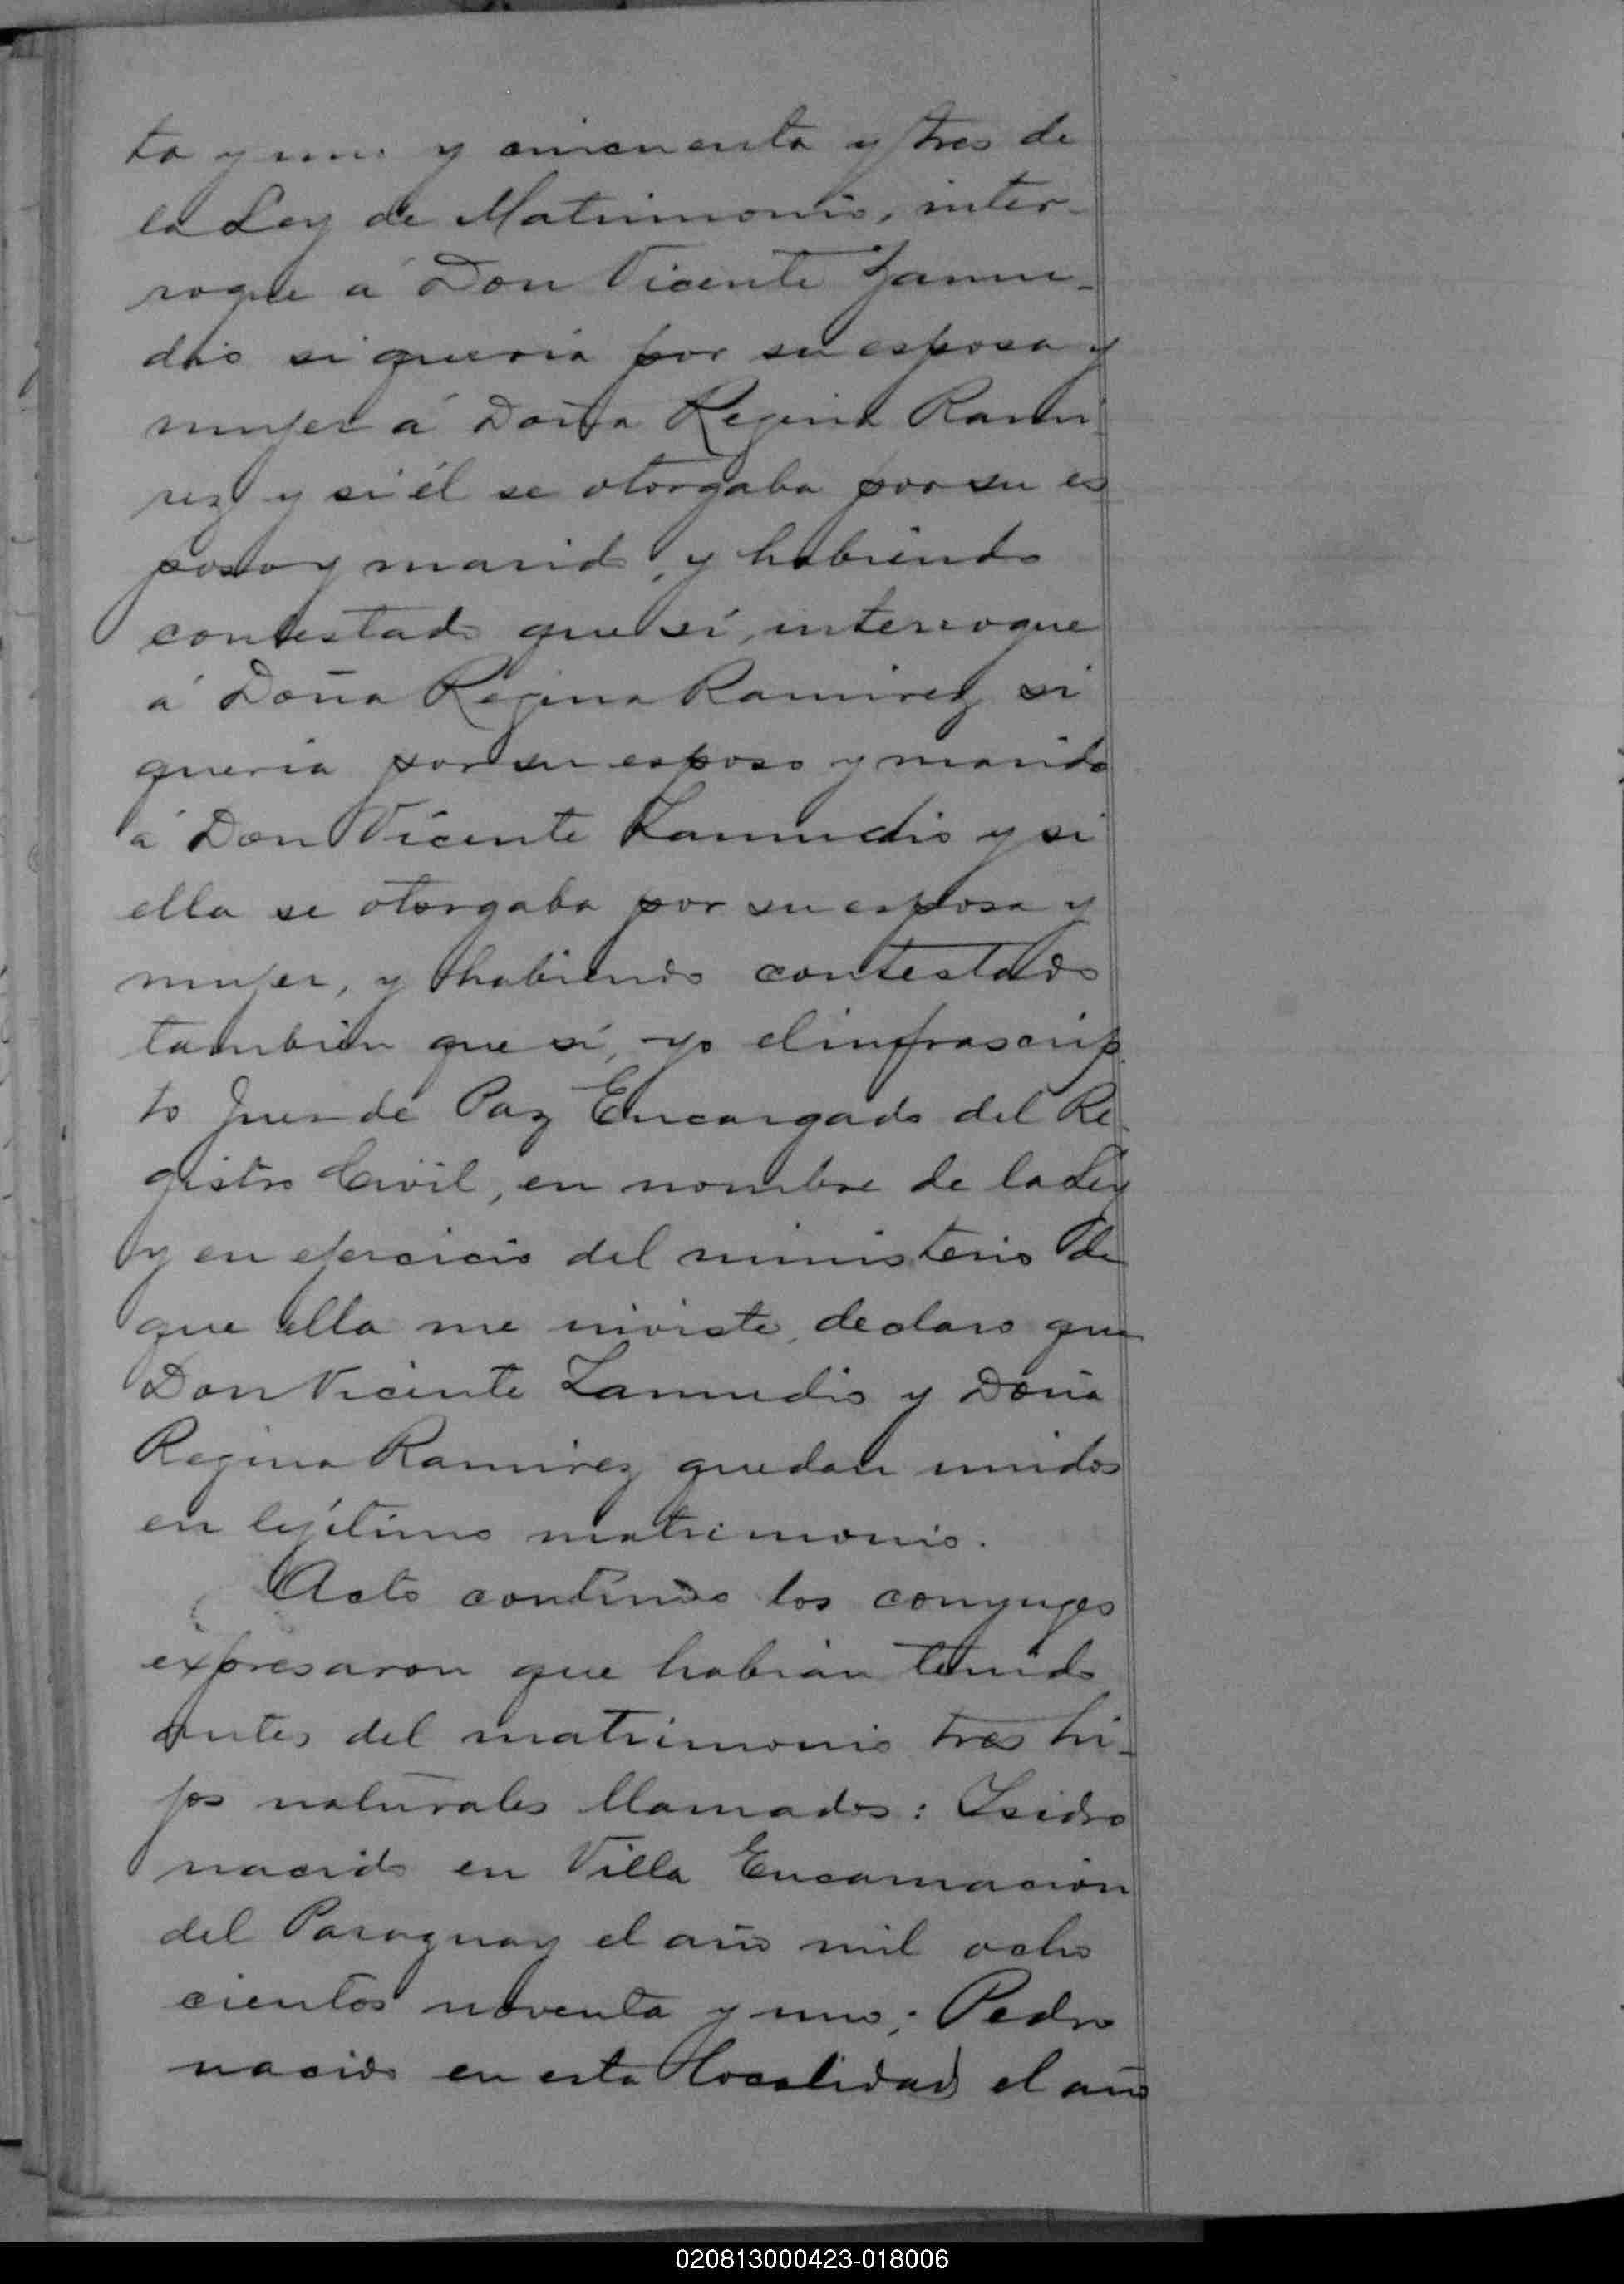 ta y uno y cincuenta y tres de
la Ley de Matrimonio, inter-
rogue á Don Vicente Zamu-
dio si queria por su esposa y
mujer á Doña Regina Rami
rez y si él se otorgaba por su es
poso y marido, y habiendo
contestado que sí, interrogue
á Doña Regina Ramirez si
queria por su esposo y marido
á Don Vicente Zamudio y si
ella se otorgaba por su esposa y
mujer, y habiendo contestado
tambien que sí, yo el infrascrip-
to Juez de Paz Encargado del Re-
gistro Civil, en nombre de la Ley
y en ejercicio del ministerio de
que ella me inviste, declaro que
Don Vicente Zamudio y Doña
Regina Ramirez quedan unidos
en lejítimo matrimonio.
Acto contínuo los conyuges
expresaron que habian tenido
antes del matrimonio tres hi-
jos naturales llamados: Isidro
nacido en Villa Encarnacion
del Paraguay el año mil ocho
cientos noventa y uno; Pedro
nacido en esta localidad el año
020813000423-018006